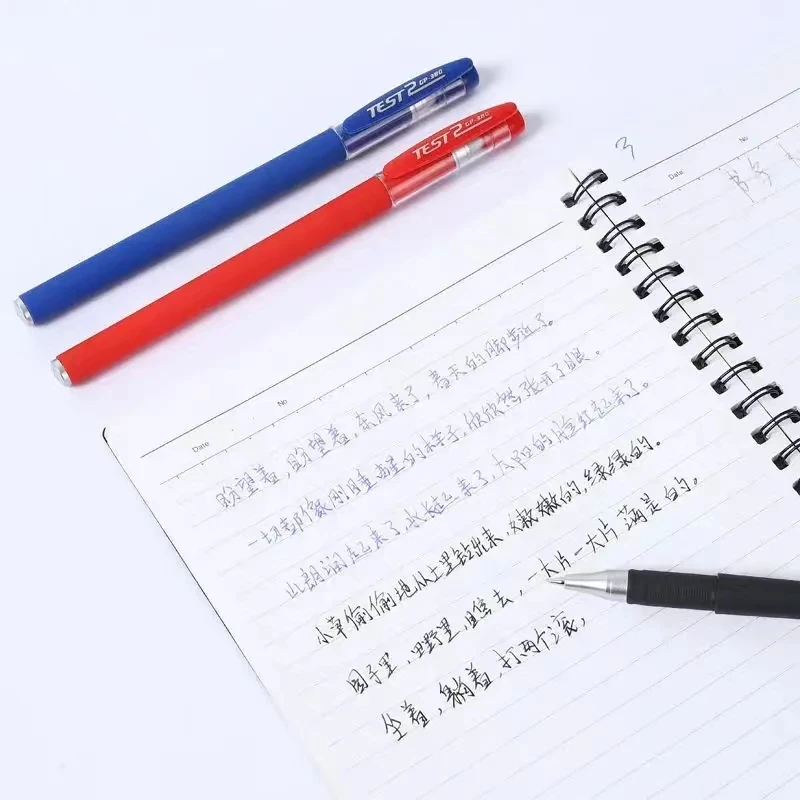 TEST2 GP-380
TEST2 GP-380
3
Date
No
Date
No
盼望着,盼望着,东风来了,春天的脚步近了。
一切都像刚睡醒的样子,欣欣然张开了眼。
山朗润起来了,水涨起来了,太阳的脸红起来了。
小草偷偷地从土里钻出来,嫩嫩的,绿绿的。
园子里,田野里,瞧去,一大片一大片满是的。
坐着,躺着,打两个滚,